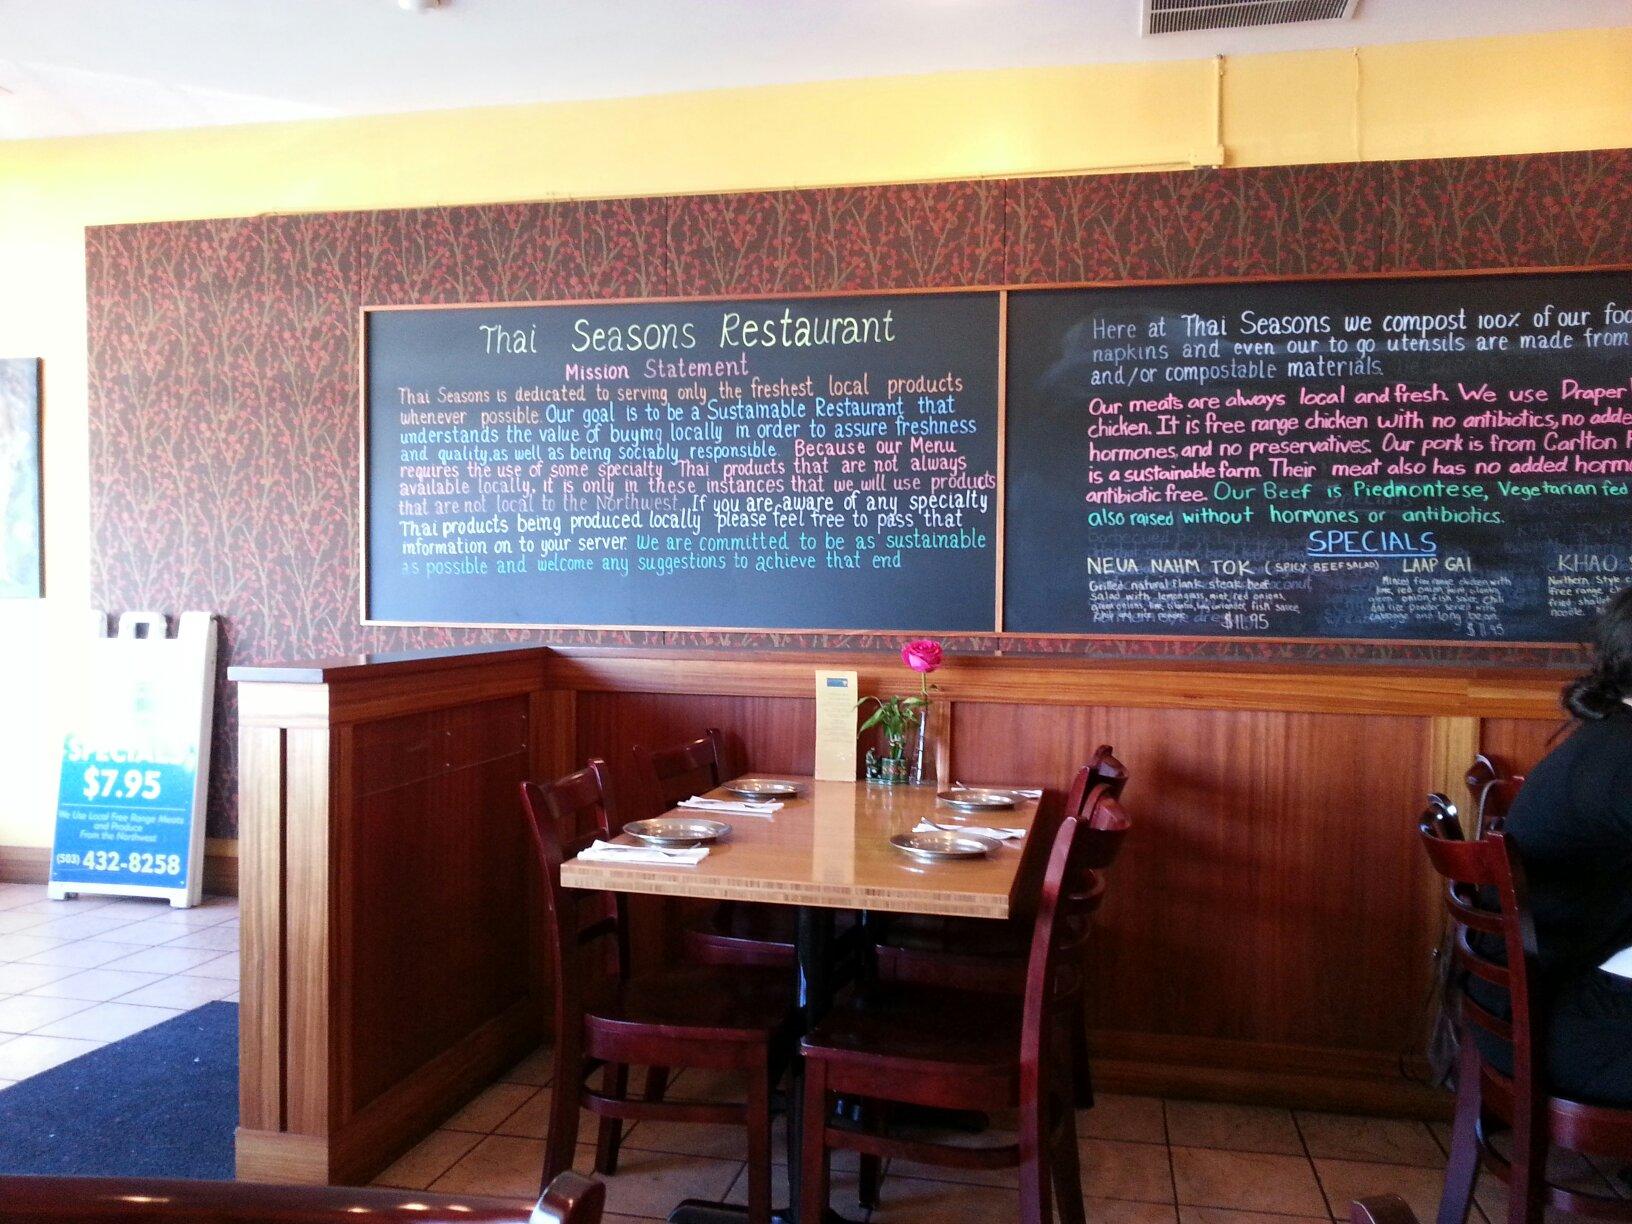 Thai Seasons Restaurant
Mission Statement
Thai Seasons is dedicated to serving only the freshest local products
whenever possible. Our goal is to be a Sustainable Restaurant that
understands the value of buying locally in order to assure freshness
and quality, as well as being sociably responsible. Because our Menu
requires the use of some specialty Thai products that are not always
available locally, it is only in these instances that we will use products
that are not local to the Northwest. If you are aware of any specialty
Thai products being produced locally please feel free to pass that
information on to your server. We are committed to be as sustainable
as possible and welcome any suggestions to achieve that end
Here at Thai Seasons we compost 100% of our foo
napkins and even our to go utensils are made from
and/or compostable materials.
Our meats are always local and fresh. We use Draper
chicken. It is free range chicken with no antibiotics, no adde
hormones, and no preservatives. Our pork is from Carlton F
is a sustainable farm. Their meat also has no added hormo
antibiotic free. Our Beef is Piedmontese, Vegetarian fed
also raised without hormones or antibiotics.
SPECIALS
NEUA NAHM TOK (SPICY BEEF SALAD)
Grilled natural flank steak beef
salad with lemongrass, mint, red onions,
green onions, lime, cilantro, coriander, fish sauce,
$11.95
LAAP GAI
Minced free range chicken with
lime, red onion, mint, cilantro,
green onion, fish sauce, chili
and rice powder served with
cabbage and long bean
$11.95
KHAO S
Northern Style c
free range c
fried shallot
noodle.
SPECIALS
$7.95
We Use Local Free Range Meats
and Produce
From the Northwest
(503) 432-8258